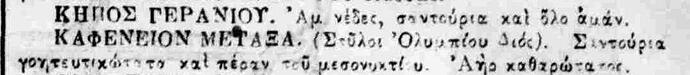 ΚΗΠΟΣ ΓΕΡΑΝΙΟΥ. Ἀμ νέδες, σαντούρια καὶ ὅλο ἀμάν.
ΚΑΦΕΝΕΙΟΝ ΜΕΤΑΞΑ. (Στῦλοι Ὀλυμπίου Διός). Σαντούρια
γοητευτικώτατα καὶ πέραν τοῦ μεσονυκτίου. Ἀὴρ καθαρώτατος.